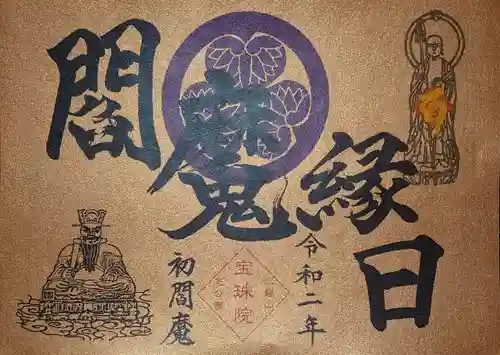 閻魔縁日
令和二年
宝珠院
初閻魔